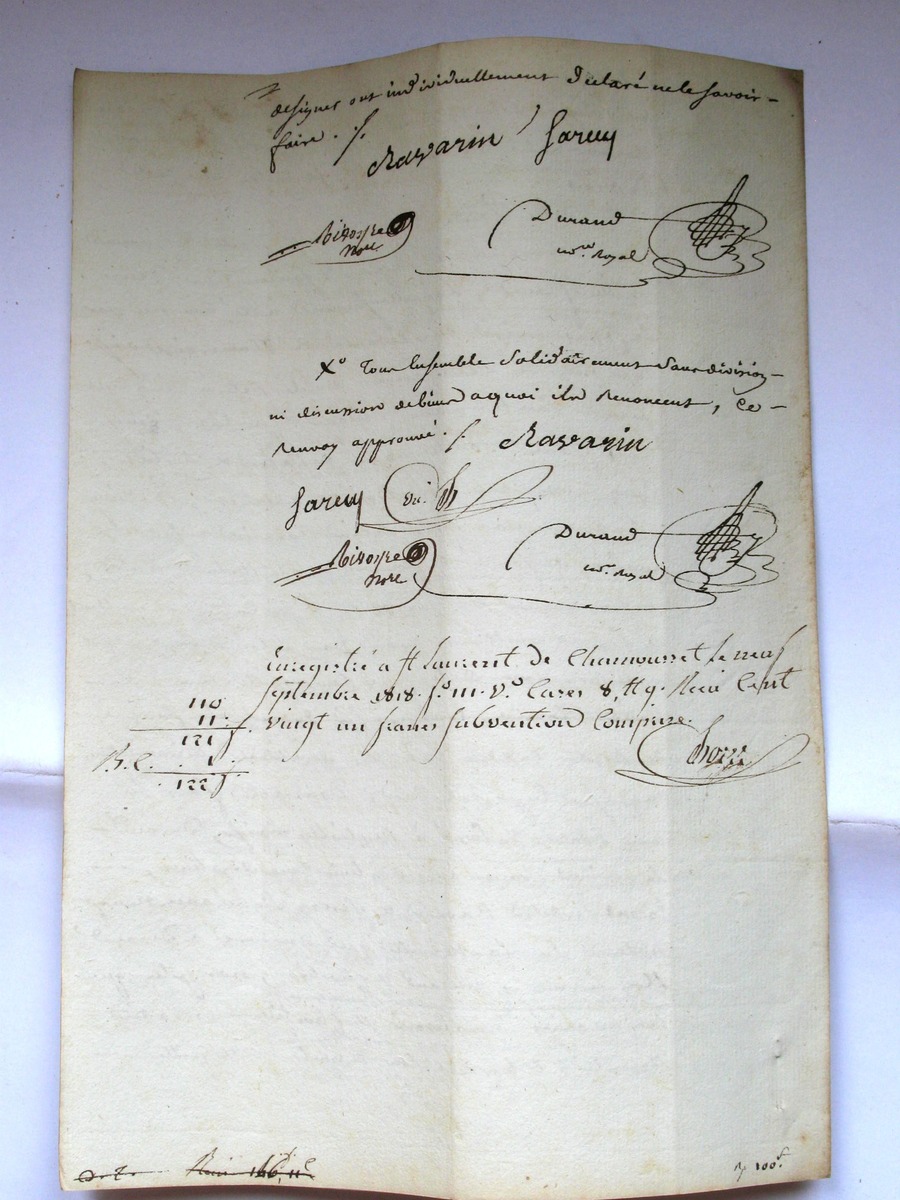 designés ont individuellement déclaré ne le savoir-
faire ./.
Ravarin Sarcey
Durand
nore
nre Royal
Xo Tous Ensemble Solidairement Sans division-
ni discussion de biens a quoi ils Renoncent, Ce-
Renvoy approuvé ./. Ravarin
Sarcey
Durand
nore
nre Royal
Enregistré a St Laurent de Chamousset le neuf
Septembre 1818. fo 111. Vo Cases 8, et 9. Reçu Cent
vingt un francs Subvention Comprise.
110
11.
121 f
1.
122 f
100 f